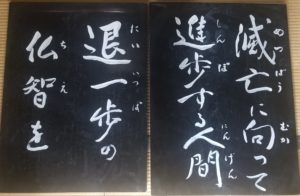 めつぼう むか
滅亡に向って
しんぽ にんげん
進歩する人間
たいいつぽ
退一歩の
ちえ
仏智を